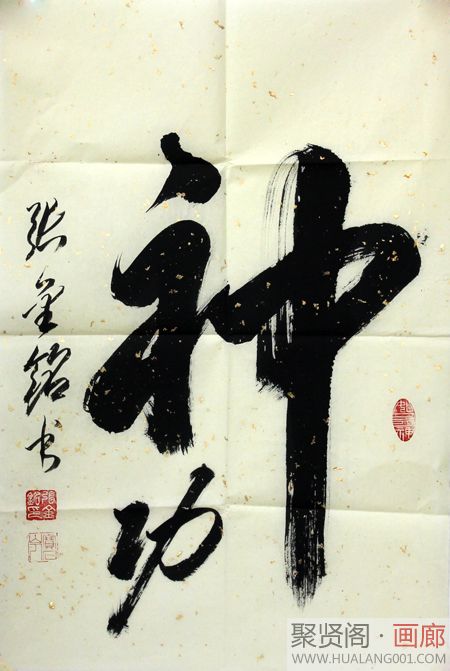 神功
张金铭书
張金
銘印
聚贤阁·画廊
WWW.HUALANG001.COM